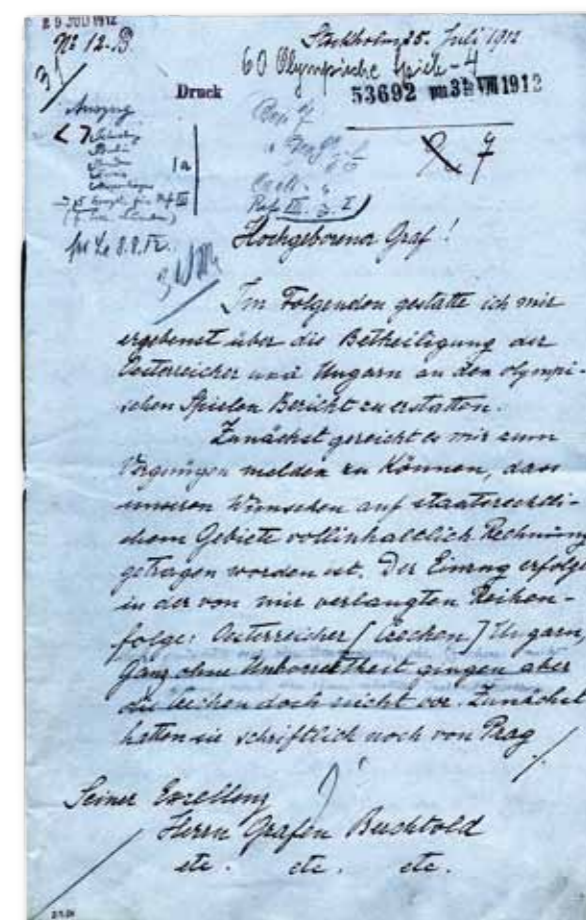 29 JULI 1912
No 12. B.
Stockholm, 25. Juli 1912
60 Olympische Spiele - 4
Druck
53692 31 VIII 1912
Auszug
Berlin
1a
7
Hochgeborener Graf!
Im Folgenden gestatte ich mir
ergebenst über die Betheiligung der
Oesterreicher und Ungarn an den olympi-
schen Spielen Bericht zu erstatten.
Zunächst gereicht es mir zum
Vergnügen melden zu können, dass
unseren Wünschen auf staatsrechtli-
chem Gebiete vollinhaltlich Rechnung
getragen worden ist. Der Einzug erfolgte
in der von mir verlangten Reihen-
folge: Oesterreicher [Czechen] Ungarn,
Ganz ohne Unkorrektheit gingen aber
die Czechen doch nicht vor. Zunächst
hatten sie schriftlich noch von Prag
Seiner Exzellenz
Herrn Grafen Berchtold
etc. etc. etc.